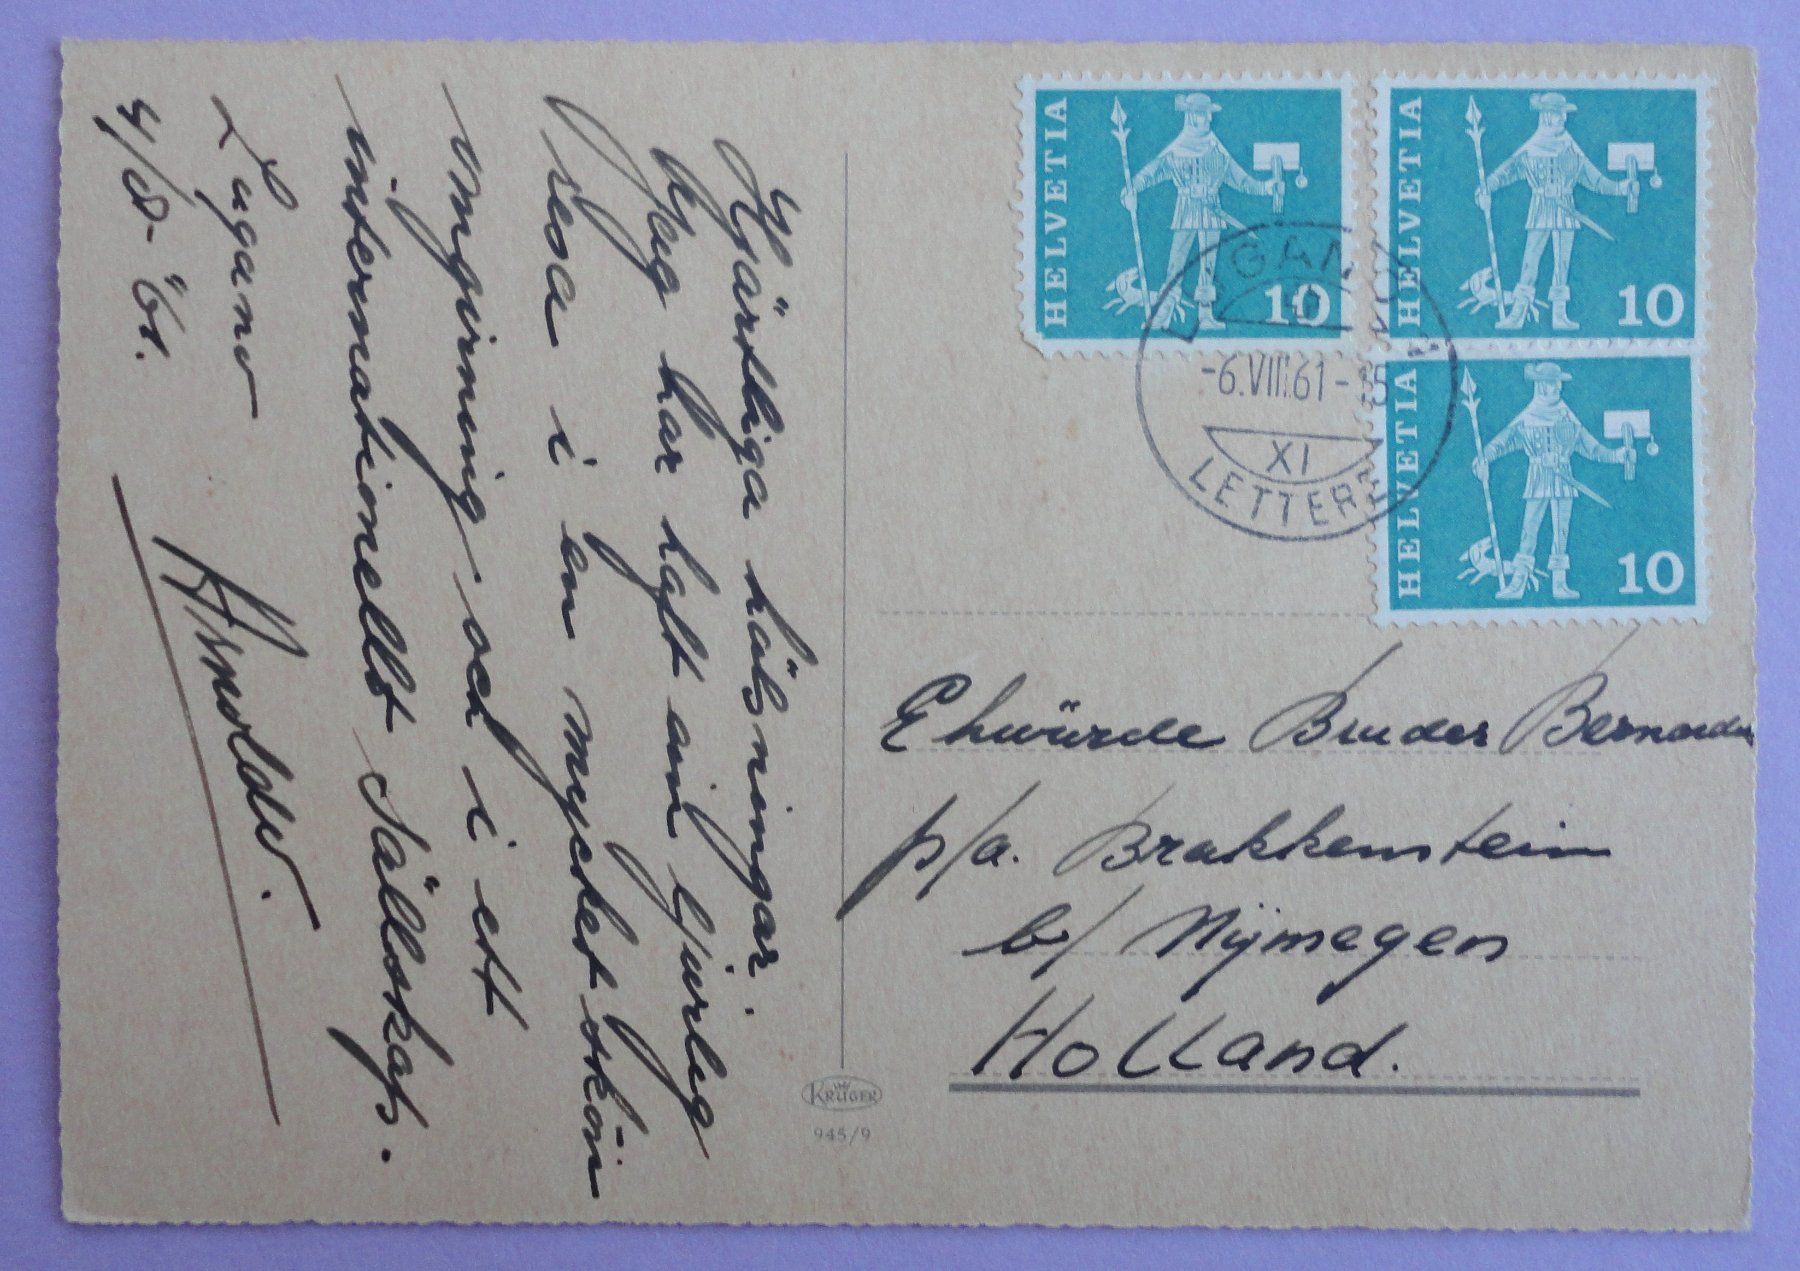 Hjärtliga hälsningar.
Jag har haft ein härleg
resa i en mycket skön
omgivning och i ett
internationellt Sällskafs.
Lugano
4/8-'61.
Arnoldo.
HELVETIA
10
HELVETIA
10
HELVETIA
10
LUGANO 1
-6.VIII.61-15
XI
LETTERE
Ehwürde Bruder Bernardus
p/a. Brakkenstein
b/ Nijmegen
Holland.
KRÜGER
945/9